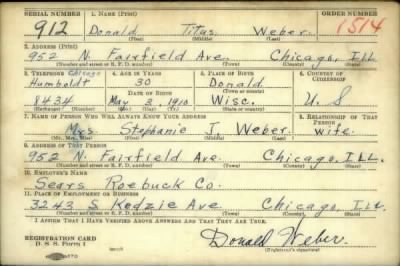 SERIAL NUMBER 1. NAME (Print) ORDER NUMBER
912 Donald Titas Weber 1514
(First) (Middle) (Last)
2. ADDRESS (Print)
952 N. Fairfield Ave. Chicago, ILL
(Number and street or R. F. D. number) (Town) (County) (State)
3. TELEPHONE Chicago 4. AGE IN YEARS 5. PLACE OF BIRTH 6. COUNTRY OF CITIZENSHIP
Humboldt 30 Donald
DATE OF BIRTH (Town or county)
8434 May 3 1910 Wisc. U. S
(Mo.) (Day) (Yr.) (State or country)
7. NAME OF PERSON WHO WILL ALWAYS KNOW YOUR ADDRESS 8. RELATIONSHIP OF THAT PERSON
Mrs Stephanie J. Weber wife.
(Mr., Mrs., Miss) (First) (Middle) (Last)
9. ADDRESS OF THAT PERSON
952 N. Fairfield Ave. Chicago, ILL.
(Number and street or R. F. D. number) (Town) (County) (State)
10. EMPLOYER'S NAME
Sears Roebuck Co.
11. PLACE OF EMPLOYMENT OR BUSINESS
3243 S Kedzie Ave Chicago, Ill.
(Number and street or R. F. D. number) (Town) (County) (State)
I AFFIRM THAT I HAVE VERIFIED ABOVE ANSWERS AND THAT THEY ARE TRUE.
REGISTRATION CARD
D. S. S. Form 1
Donald Weber.
(Registrant's signature)